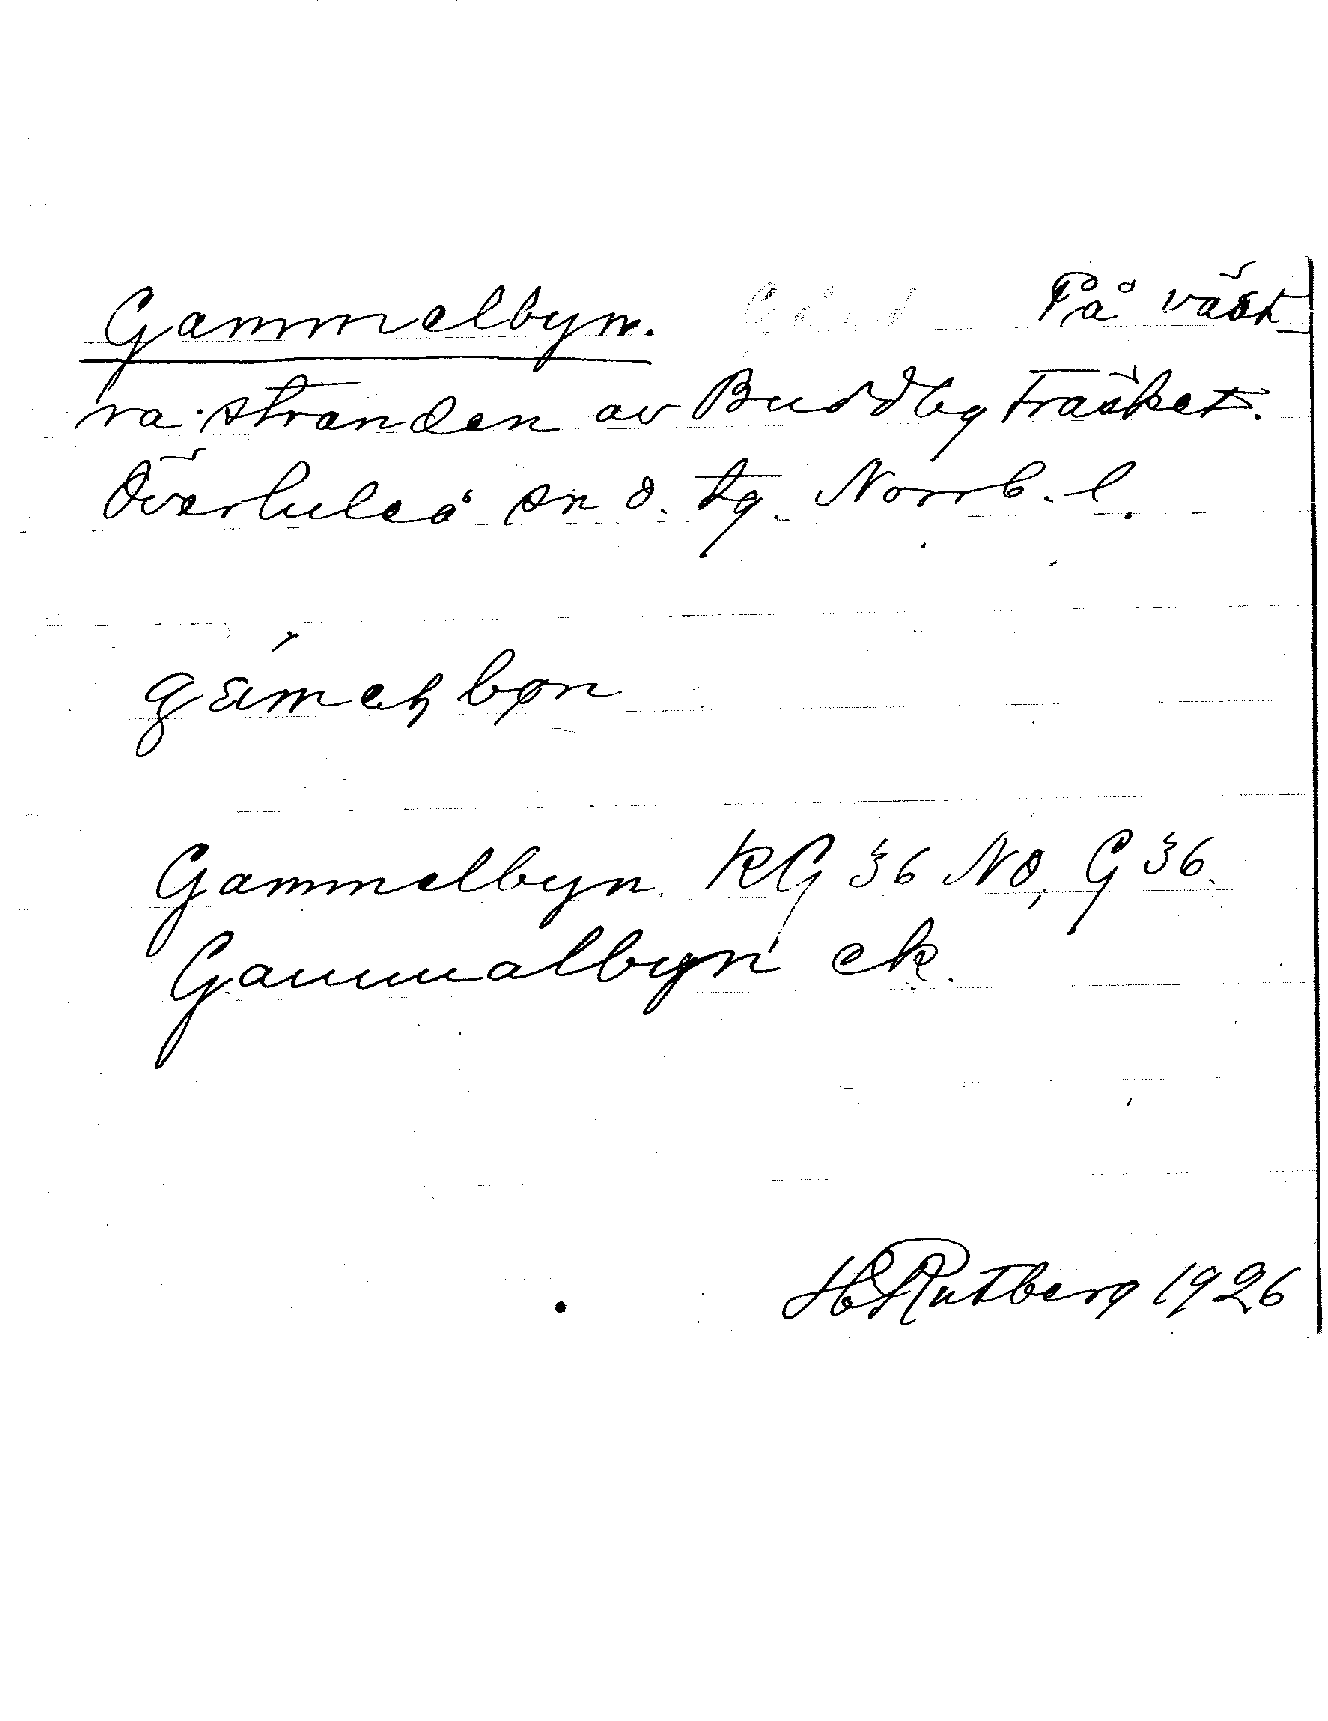 Gammelbyn. På väst
ra stranden av Buddby Träsket.
Överluleå sn o. tg. Norrb. l.
Gammelbyn KG 36 NO, G 36.
Gammalbyn ek.
H Rutberg 1926